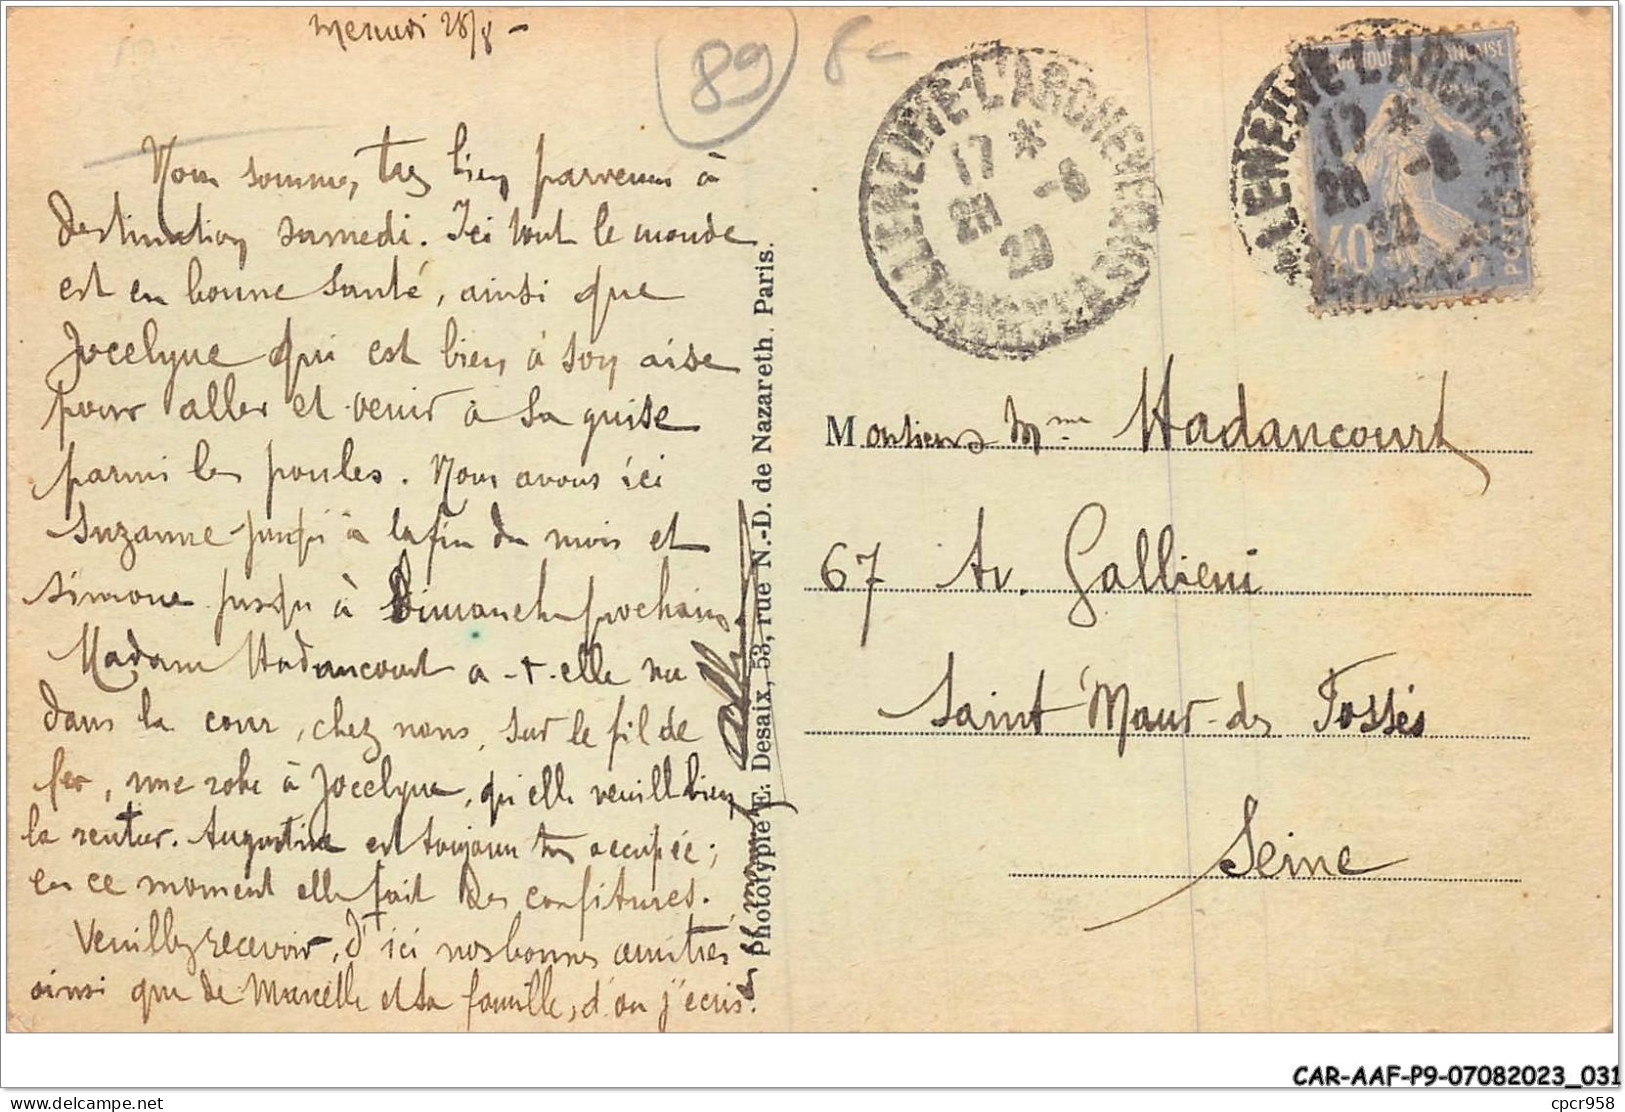 Mercredi 28/8 -
89
8-
Nous sommes très bien parvenus à
destination samedi. Ici tout le monde
est en bonne santé, ainsi que
Jocelyne qui est bien à son aise
pour aller et venir à sa guise
parmi les poules. Nous avons ici
Suzanne jusqu'à la fin du mois et
Simone jusqu'à Dimanche prochain.
Madame Hadancourt a-t-elle vu
dans la cour, chez nous, sur le fil de
fer, une robe à Jocelyne, qu'elle veuille bien
la rentrer. Augustine est toujours très occupée ;
en ce moment elle fait des confitures.
Veuillez recevoir, d'ici nos bonnes amitiés
ainsi que de Marcelle et sa famille, d'où j'écris.
Phototypie E. Desaix, 53, rue N.-D. de Nazareth. Paris.
VILLENEUVE-L'ARCHEVEQUE
17 *
28 -8
29
VILLENEUVE-L'ARCHEVEQUE
17 *
28 -8
29
40
POSTES
Monsieur Mme Hadancourt
67 Av. Gallieni
Saint-Maur-des Fossés
Seine
CAR-AAF-P9-07082023_031
delcampe.net
cpcr958